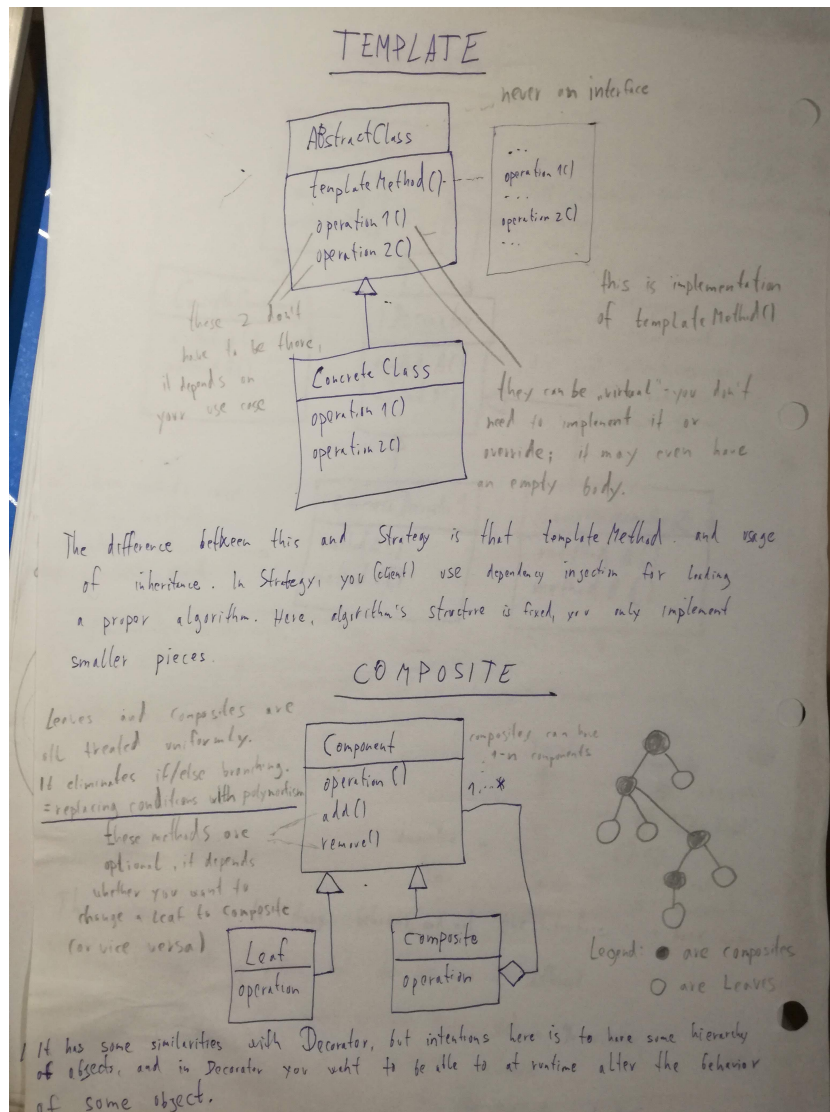 TEMPLATE
never an interface
AbstractClass
templateMethod()
operation 1()
operation 2()
...
operation 1()
...
operation 2()
...
this is implementation
of templateMethod()
these 2 don't
have to be there,
it depends on
your use case
Concrete Class
operation 1()
operation 2()
they can be „virtual" - you don't
need to implement it or
override; it may even have
an empty body.
The difference between this and Strategy is that templateMethod. and usage
of inheritance. In Strategy, you (client) use dependency injection for loading
a proper algorithm. Here, algorithm's structure is fixed, you only implement
smaller pieces.
COMPOSITE
Leaves and composites are
all treated uniformly.
It eliminates if/else branching.
= replacing conditions with polymorphism
these methods are
optional, it depends
whether you want to
change a Leaf to composite
(or vice versa)
Component
operation()
add()
remove()
composites can have
1-n components
1...*
Leaf
operation
Composite
operation
Legend: ● are composites
○ are Leaves
! It has some similarities with Decorator, but intentions here is to have some hierarchy
of objects, and in Decorator you want to be able to at runtime alter the behavior
of some object.